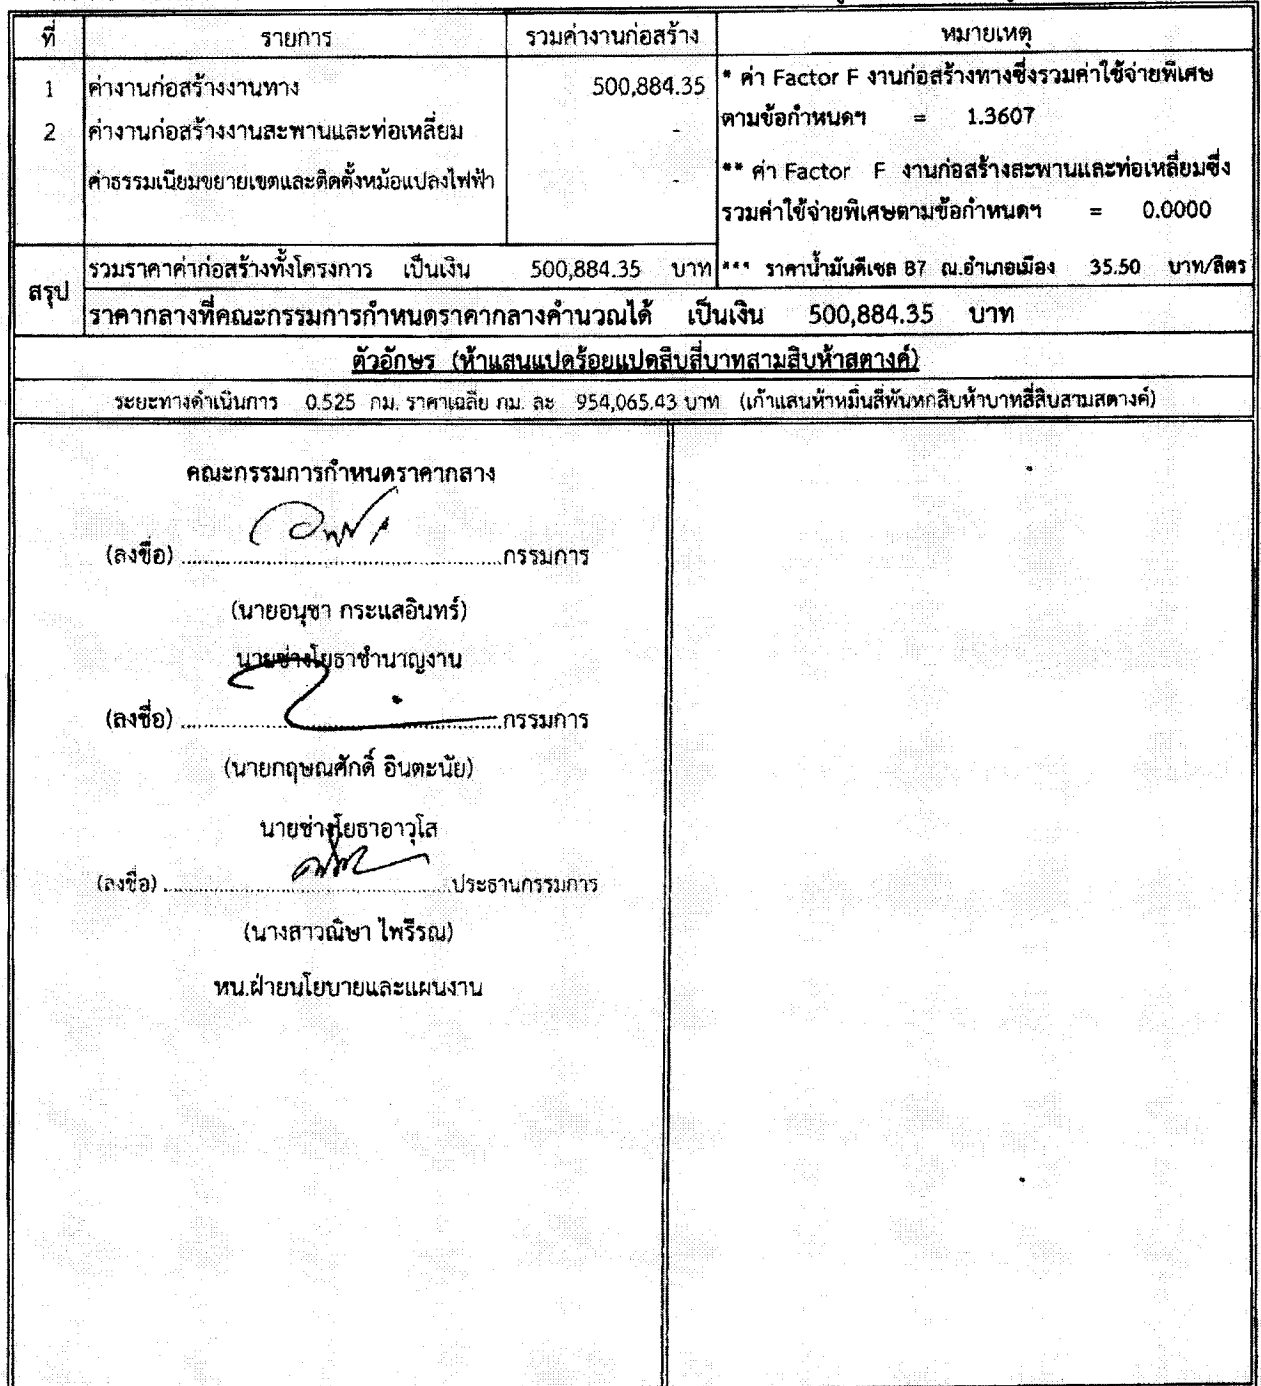 ที่ รายการ รวมค่างานก่อสร้าง หมายเหตุ
1 ค่างานก่อสร้างงานทาง 500,884.35
2 ค่างานก่อสร้างงานสะพานและท่อเหลี่ยม -
ค่าธรรมเนียมขยายเขตและติดตั้งหม้อแปลงไฟฟ้า -
* ค่า Factor F งานก่อสร้างทางซึ่งรวมค่าใช้จ่ายพิเศษ
ตามข้อกำหนดฯ = 1.3607
** ค่า Factor F งานก่อสร้างสะพานและท่อเหลี่ยมซึ่ง
รวมค่าใช้จ่ายพิเศษตามข้อกำหนดฯ = 0.0000
สรุป รวมราคาค่าก่อสร้างทั้งโครงการ เป็นเงิน 500,884.35 บาท *** ราคาน้ำมันดีเซล B7 ณ.อำเภอเมือง 35.50 บาท/ลิตร
ราคากลางที่คณะกรรมการกำหนดราคากลางคำนวณได้ เป็นเงิน 500,884.35 บาท
ตัวอักษร (ห้าแสนแปดร้อยแปดสิบสี่บาทสามสิบห้าสตางค์)
ระยะทางดำเนินการ 0.525 กม. ราคาเฉลี่ย กม. ละ 954,065.43 บาท (เก้าแสนห้าหมื่นสี่พันหกสิบห้าบาทสี่สิบสามสตางค์)
คณะกรรมการกำหนดราคากลาง
(ลงชื่อ) ........................................ กรรมการ
(นายอนุชา กระแสอินทร์)
นายช่างโยธาชำนาญงาน
(ลงชื่อ) ........................................ กรรมการ
(นายกฤษณศักดิ์ อินตะนัย)
นายช่างโยธาอาวุโส
(ลงชื่อ) ........................................ ประธานกรรมการ
(นางสาวณิษา ไพรีรณ)
หน.ฝ่ายนโยบายและแผนงาน